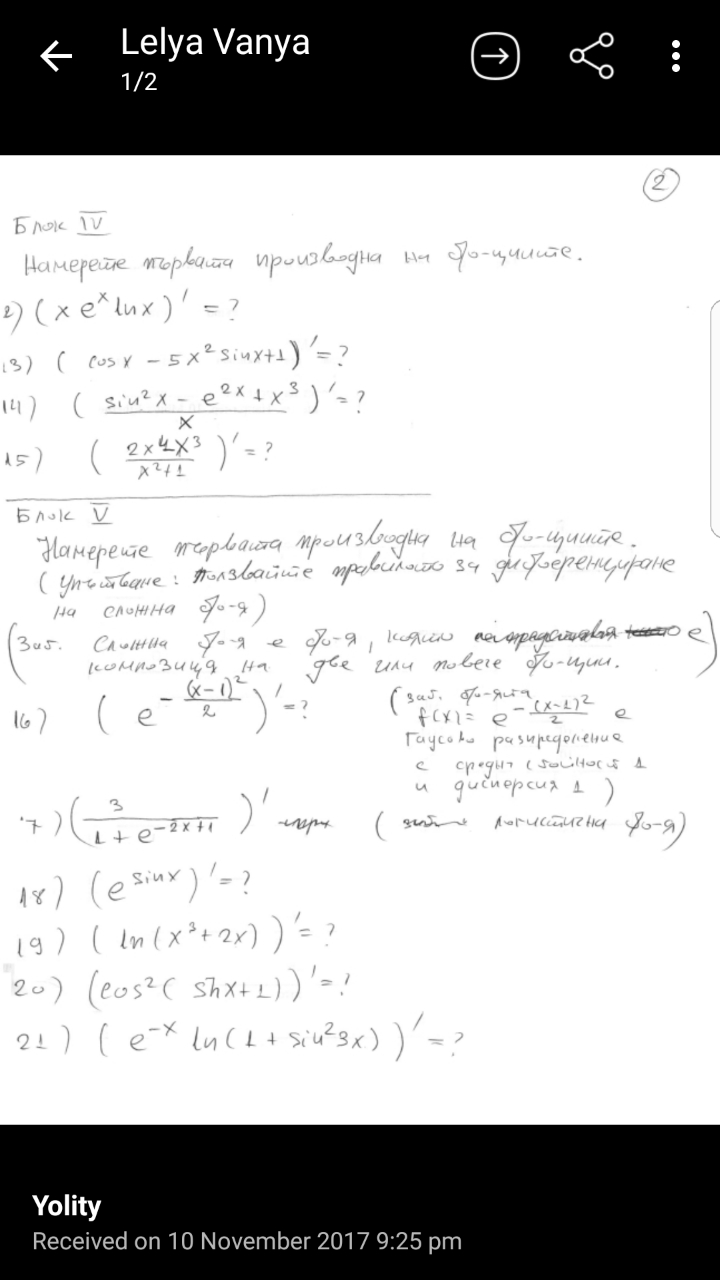 Lelya Vanya
1/2
2
Блок IV
Намерете първата производна на ф-циите.
2) (x e^x ln x)' = ?
13) ( cos x - 5x² sin x+1)' = ?
14) ( (sin² x - e^{2x} + x³) / x )' = ?
15) ( 2x 4x³ / x²+1 )' = ?
Блок V
Намерете първата производна на ф-циите.
(Упътване: Ползвайте правилото за диференциране
на сложна ф-я)
(Заб. Сложна ф-я е ф-я, която е
композиция на две или повече ф-ции.)
16) ( e^{-(x-1)²/2} )' = ?
(заб. ф-ята
f(x) = e^{-(x-1)²/2} е
Гаусово разпределение
с средна стойност 1
и дисперсия 1)
7) ( 3 / 1 + e^{-2x+1} )'
( логистична ф-я)
18) (e^{sin x})' = ?
19) ( ln(x³ + 2x) )' = ?
20) (cos²( x+1))' = ?
21) ( e^{-x} ln(1 + sin² 3x) )' = ?
Yolity
Received on 10 November 2017 9:25 pm